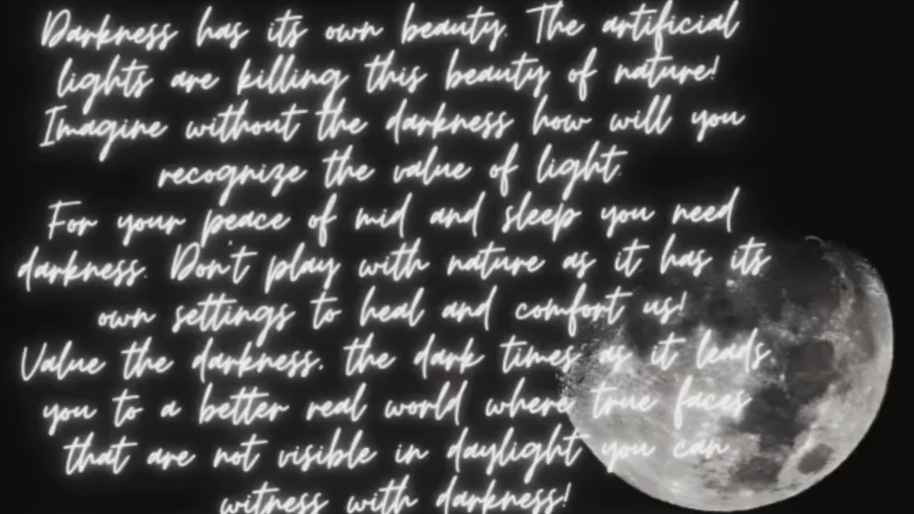 Darkness has its own beauty. The artificial
lights are killing this beauty of nature!
Imagine without the darkness how will you
recognize the value of light.
For your peace of mid and sleep you need
darkness. Don't play with nature as it has its
own settings to heal and comfort us!
Value the darkness, the dark times as it leads,
you to a better real world where true faces
that are not visible in daylight you can
witness with darkness!